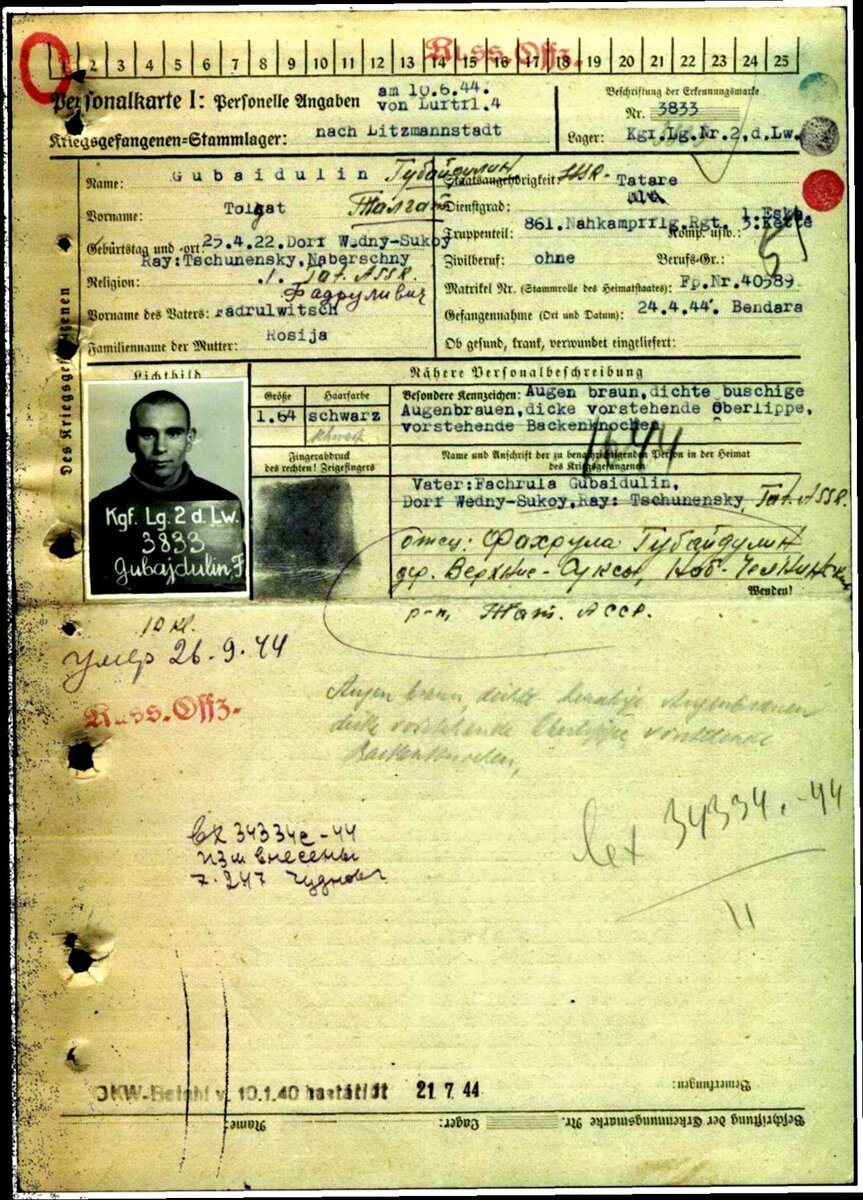 Russ. Offz.
1 2 3 4 5 6 7 8 9 10 11 12 13 14 15 16 17 18 19 20 21 22 23 24 25
Personalkarte I: Personelle Angaben
am 10.6.44.
von Luftfl.4
Beschriftung der Erkennungsmarke
Nr. 3833
Kriegsgefangenen-Stammlager: nach Litzmannstadt
Lager: Kgf.Lg.Nr.2,d.Lw.
Des Kriegsgefangenen
Name: Gubaidulin Губайдулин
Staatsangehörigkeit: Tatare
Vorname: Tolgat Талгат
Dienstgrad:
Geburtstag und -ort 25.4.22.Dorf Wedny-Sukoy
Truppenteil: 861.Nahkampfflg.Rgt. Komp. usw.: 3.Kette
Ray:Tschunensky,Naberschny
Zivilberuf: ohne Berufs-Gr.:
Religion: Тат. АССР.
Matrikel Nr. (Stammrolle des Heimatstaates): Fp.Nr.40589
Фадруливич
Vorname des Vaters: Fadrulwitsch
Gefangennahme (Ort und Datum): 24.4.44. Bendara
Familienname der Mutter: Rosija
Ob gesund, krank, verwundet eingeliefert:
Lichtbild
Nähere Personalbeschreibung
Größe Haarfarbe
1.64 schwarz
schwarz
Besondere Kennzeichen: Augen braun,dichte buschige
Augenbrauen,dicke vorstehende Oberlippe,
vorstehende Backenknochen
Fingerabdruck
des rechten! Zeigefingers
Name und Anschrift der zu benachrichtigenden Person in der Heimat
des Kriegsgefangenen
Vater:Fachrula Gubaidulin,
Dorf Wedny-Sukoy,Ray: Tschunensky, Тат. АССР.
Kgf. Lg. 2 d. Lw.
3833
Gubajdulin, F
отец: Фахрула Губайдулин
дер. Верхние-Суксы, Наб-Челнинский
Wenden!
р-н, Тат. АССР.
10 кл.
умер 26.9.44
Russ. Offz.
Augen braun, dichte buschige Augenbrauen
dicke vorstehende Oberlippe, vorstehende
Backenknochen,
вх 34334с-44
изм внесены
вх 34334с-44
OKW-Befehl v. 10.1.40 bestätigt 21 7 44
Bemerkungen:
Beschriftung der Erkennungsmarke Nr.
Lager:
Name: